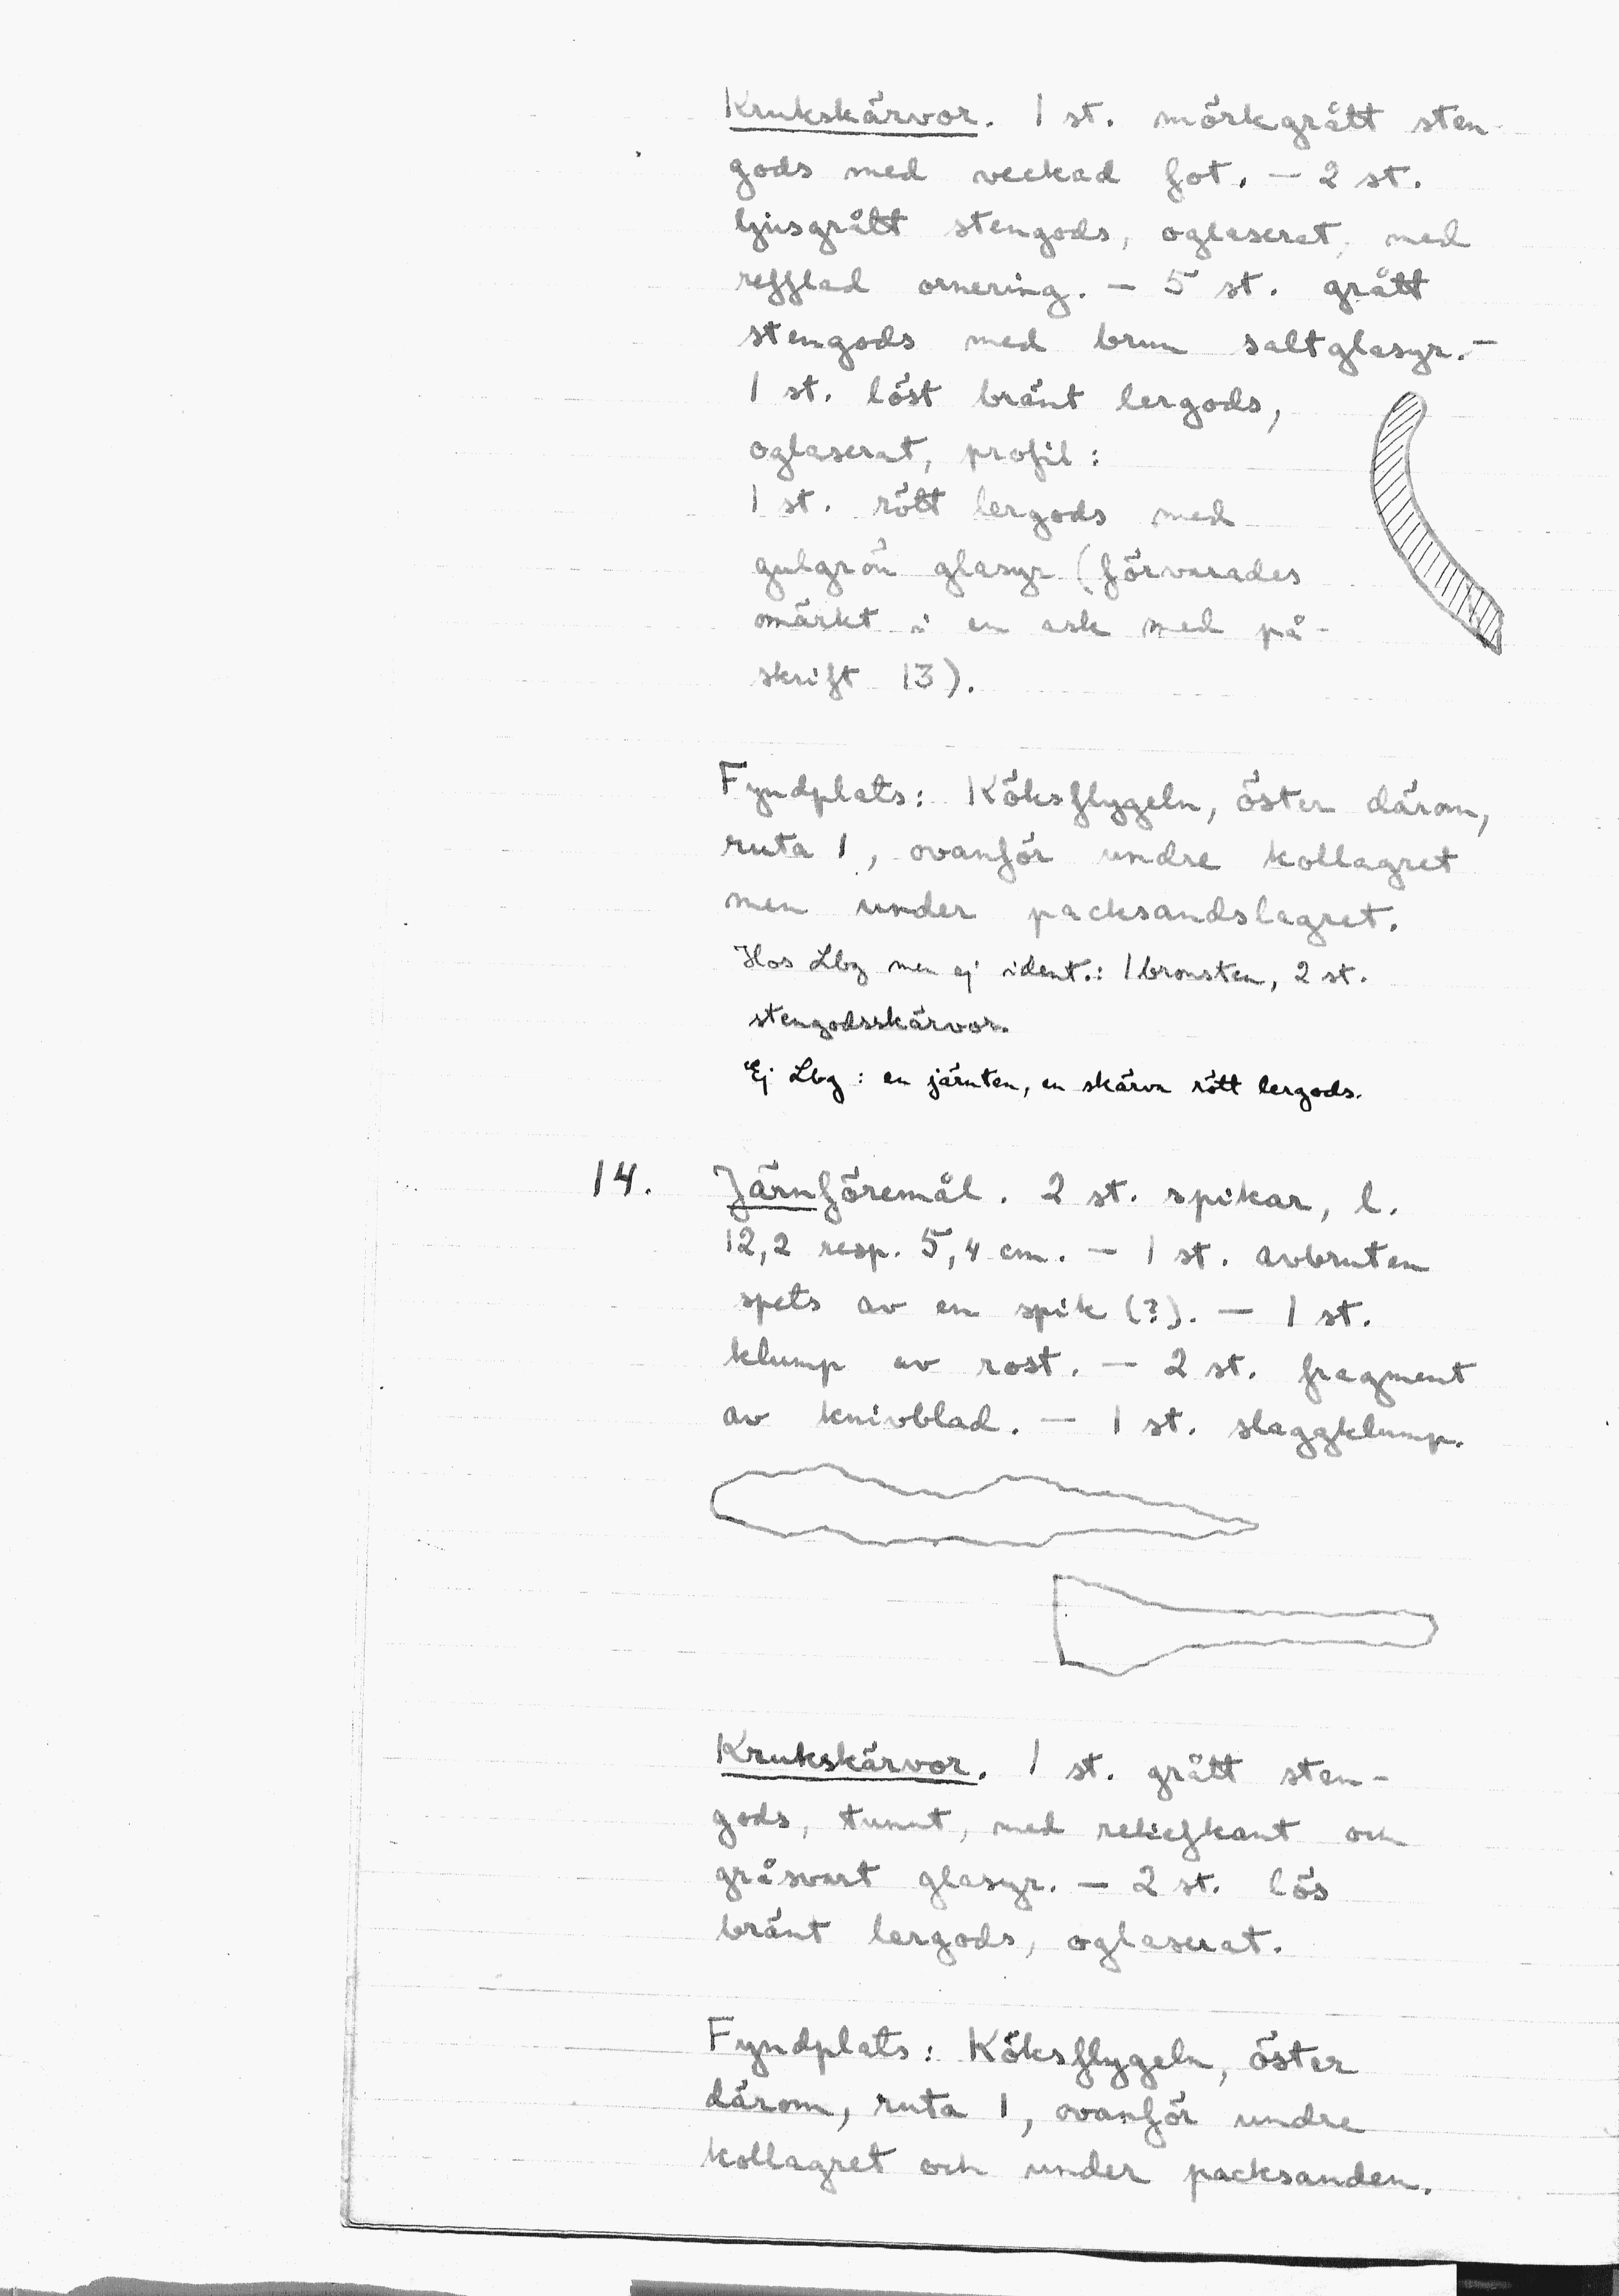 Krukskärvor. 1 st. mörkgrått sten-
gods med veckad fot. — 2 st.
ljusgrått stengods, oglaserat, med
refflad ornering. — 5 st. grått
stengods med brun saltglasyr. —
1 st. löst bränt lergods,
oglaserat, profil:
1 st. rött lergods med
gulgrön glasyr (förvarades
omärkt i en ask med på-
skrift 13).
Fyndplats: Köksflygeln, öster därom,
ruta 1, ovanför undre kollagret
men under packsandslagret.
Hos Lbg men ej ident.: 1 bronsten, 2 st.
stengodsskärvor.
Ej Lbg: en järnten, en skärva rött lergods.
14. Järnföremål. 2 st. spikar, l.
12,2 resp. 5,4 cm. — 1 st. avbruten
spets av en spik (?). — 1 st.
klump av rost. — 2 st. fragment
av knivblad. — 1 st. slaggklump.
Krukskärvor. 1 st. grått sten-
gods, tunnt, med reliefkant och
gråsvart glasyr. — 2 st. lös
bränt lergods, oglaserat.
Fyndplats: Köksflygeln, öster
därom, ruta 1, ovanför undre
kollagret och under packsanden.